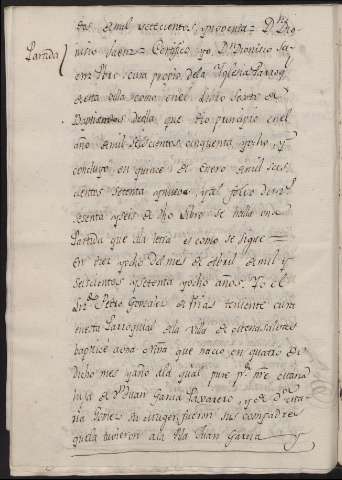 dos de mil setecientos, y noventa = Dn Dio
nisio Saenz = Certifico yo Dn Dionisio Sa
Partida
enz Pbro cura propio dela Iglesia Parroq
desta villa como enel libro sexto de
Baptizados della, que dio principio enel
año de mil seiscientos cinquenta, yocho, y
concluyo en quince de Enero de mil seis
cientos setenta ynueve, yal folio
sesenta yseis de dho libro se halla una
Partida que ala letra es como se sigue =
En diez yocho del mes de Abril de mil y
seiscientos ysetenta yocho años, Yo el
Pedro Gonzalez de frias teniente cura
enesta Parroquial dela villa de
baptice auna Niña que nacio en quatro de
Dicho mes yaño ala qual puse pr nre
hija de Juan Garcia y de
su muger, fueron sus compadres
quela tuvieron ala Pila Juan Garcia y